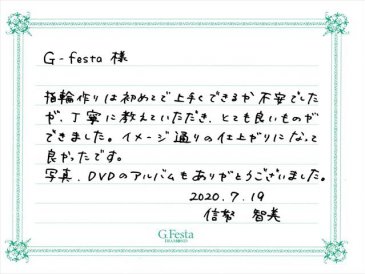 G-festa 様
指輪作りは初めてで上手くできるか不安でした
が、丁寧に教えていただき、とても良いものが
できました。イメージ通りの仕上がりになって
良かったです。
写真、DVDのアルバムもありがとうございました。
2020.7.19
信努 智美
G.Festa
DIAMOND